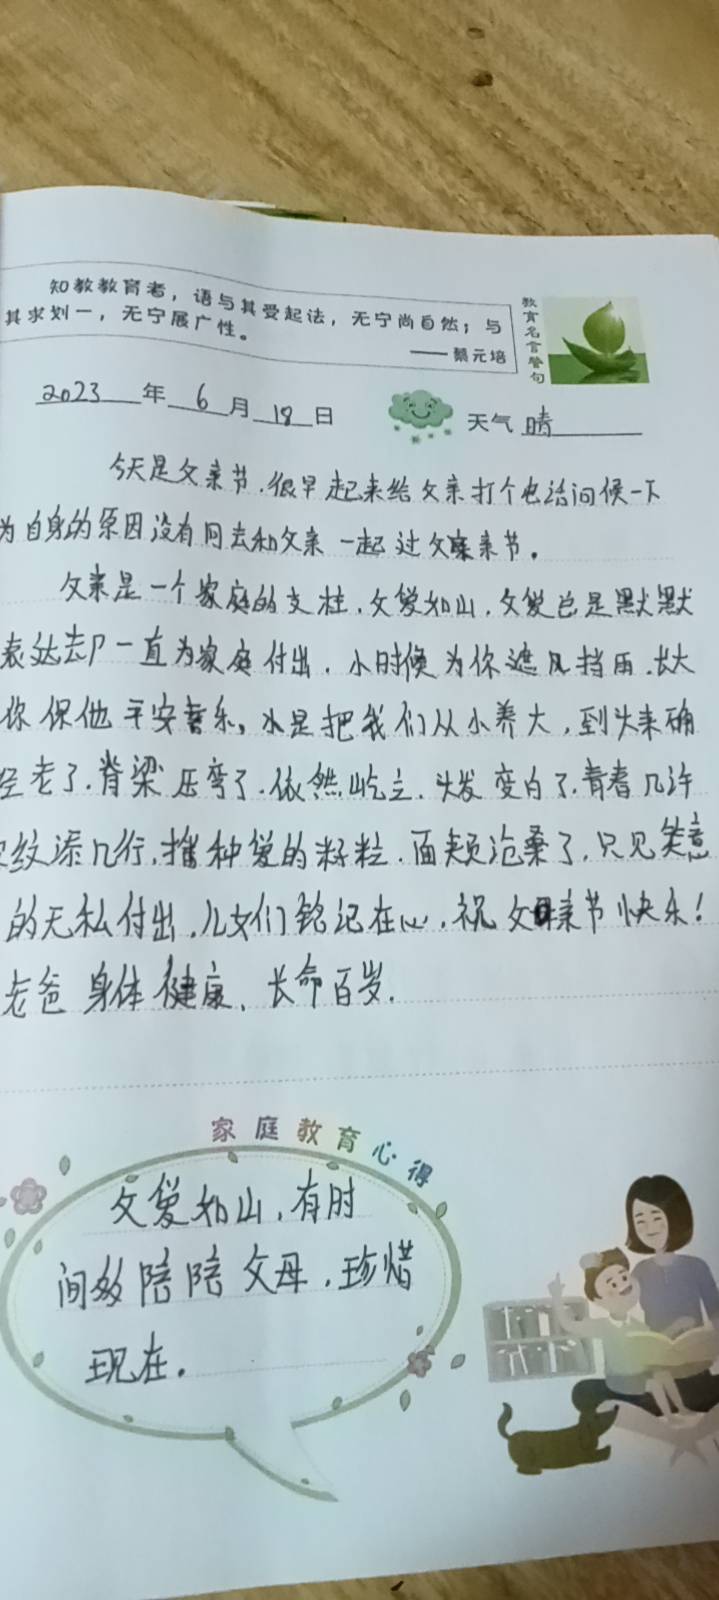 知教教育者，语与其受起法，无宁尚自然；与
其求划一，无宁展广性。
——蔡元培
教育名言警句
2023年6月18日
天气 晴
今天是父亲节.很早起来给父亲打个电话问候一下
为自身的原因没有同去和父亲一起过父亲节。
父亲是一个家庭的支柱.父爱如山.父爱总是默默
表达去户一直为家庭付出.小时候为你遮风挡雨.长大
你保他平安喜乐。水是把我们从小养大,到头来确
老了.脊梁压弯了.依然屹立.头发变白了.青春几许
纹添几行.播种爱的籽粒.面颊沧桑了.只见笑意
的无私付出.儿女们铭记在心.祝父亲节快乐!
老爸身体健康、长命百岁.
家庭教育心得
父爱如山.有时
间多陪陪父母.珍惜
现在。